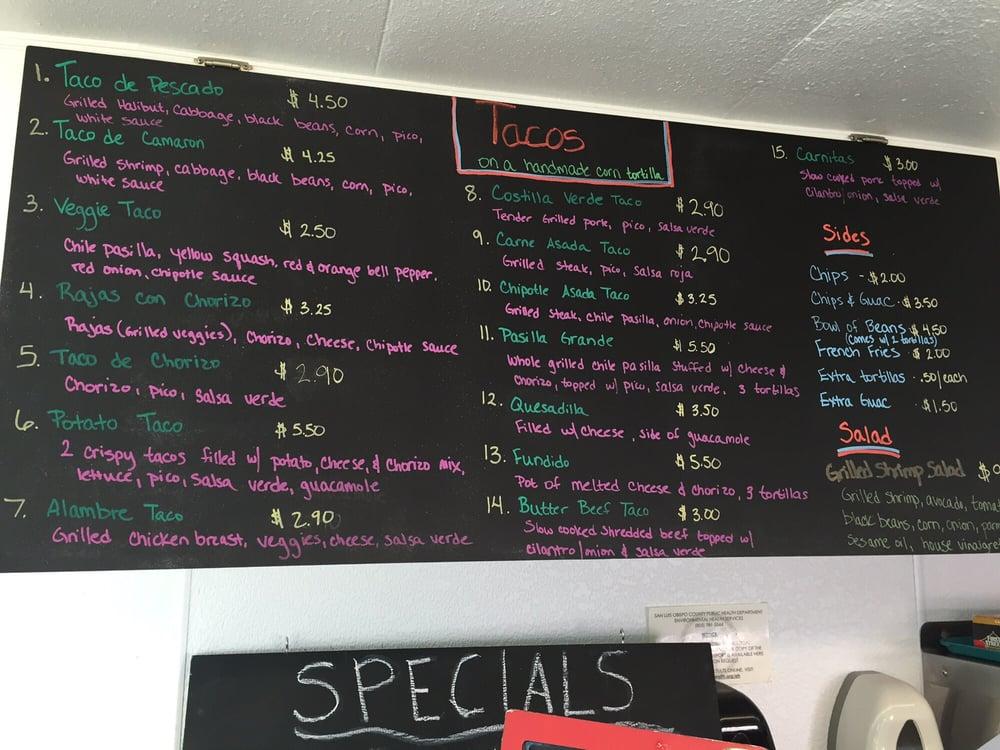 1. Taco de Pescado $ 4.50
Grilled Halibut, Cabbage, black beans, corn, pico,
white sauce
2. Taco de Camaron $ 4.25
Grilled Shrimp, cabbage, black beans, corn, pico,
white sauce
3. Veggie Taco $ 2.50
Chile pasilla, yellow squash, red & orange bell pepper,
red onion, chipotle sauce
4. Rajas con Chorizo $ 3.25
Rajas (Grilled veggies), Chorizo, Cheese, Chipotle sauce
5. Taco de Chorizo $ 2.90
Chorizo, pico, salsa verde
6. Potato Taco $ 5.50
2 crispy tacos filled w/ potato, cheese, & chorizo mix,
lettuce, pico, salsa verde, guacamole
7. Alambre Taco $ 2.90
Grilled chicken breast, veggies, cheese, salsa verde
Tacos
on a handmade corn tortilla
8. Costilla Verde Taco $ 2.90
Tender Grilled pork, pico, salsa verde
9. Carne Asada Taco $ 2.90
Grilled steak, pico, salsa roja
10. Chipotle Asada Taco $ 3.25
Grilled steak, chile pasilla, onion, chipotle sauce
11. Pasilla Grande $ 5.50
Whole grilled chile pasilla stuffed w/ cheese &
chorizo, topped w/ pico, salsa verde, 3 tortillas
12. Quesadilla $ 3.50
Filled w/ cheese, side of guacamole
13. Fundido $ 5.50
Pot of melted cheese & chorizo, 3 tortillas
14. Butter Beef Taco $ 3.00
Slow cooked shredded beef topped w/
cilantro/onion & salsa verde
15. Carnitas $ 3.00
Slow cooked pork topped w/
cilantro/onion, salsa verde
Sides
Chips - $2.00
Chips & Guac - $3.50
Bowl of Beans $ 4.50
(comes w/ 2 tortillas)
French Fries - $ 2.00
Extra tortillas - .50/each
Extra Guac - $1.50
Salad
Grilled Shrimp Salad $9
Grilled shrimp, avocado, tomat
black beans, corn, onion,
Sesame oil, house vinaigre
SAN LUIS OBISPO COUNTY PUBLIC HEALTH DEPARTMENT
ENVIRONMENTAL HEALTH SERVICES
NOTICE
SPECIALS